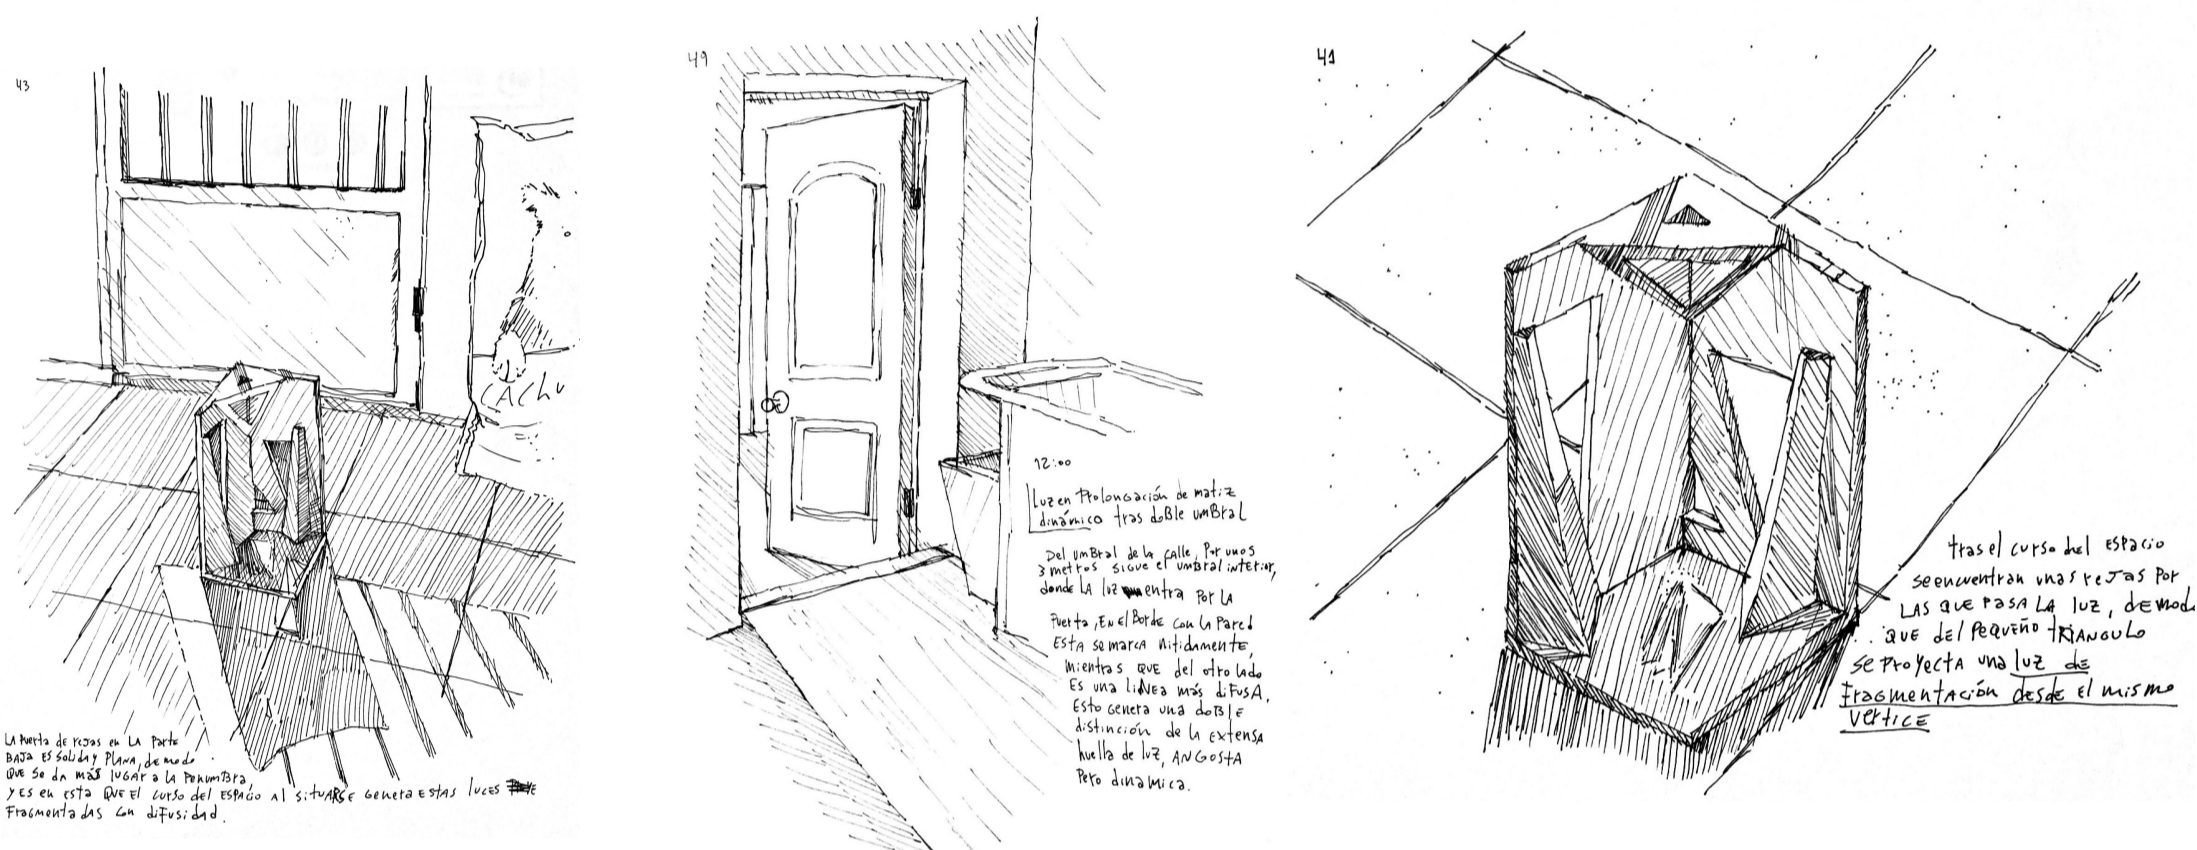 43
CACHU
La puerta de rejas en la parte
baja es solida y plana, de modo
que se da más lugar a la penumbra,
y es en esta que el curso del espacio al situarse genera estas luces
fragmentadas con difusidad.
49
12:00
Luz en prolongación de matiz
dinámico tras doble umbral
Del umbral de la calle, por unos
3 metros sigue el umbral interior,
donde la luz entra por la
puerta, en el borde con la pared
esta se marca nitidamente,
mientras que del otro lado
es una linea más difusa.
Esto genera una doble
distinción de la extensa
huella de luz, angosta
pero dinamica.
41
tras el curso del espacio
se encuentran unas rejas por
las que pasa la luz, de modo
que del pequeño triangulo
se proyecta una luz de
fragmentación desde el mismo
vertice